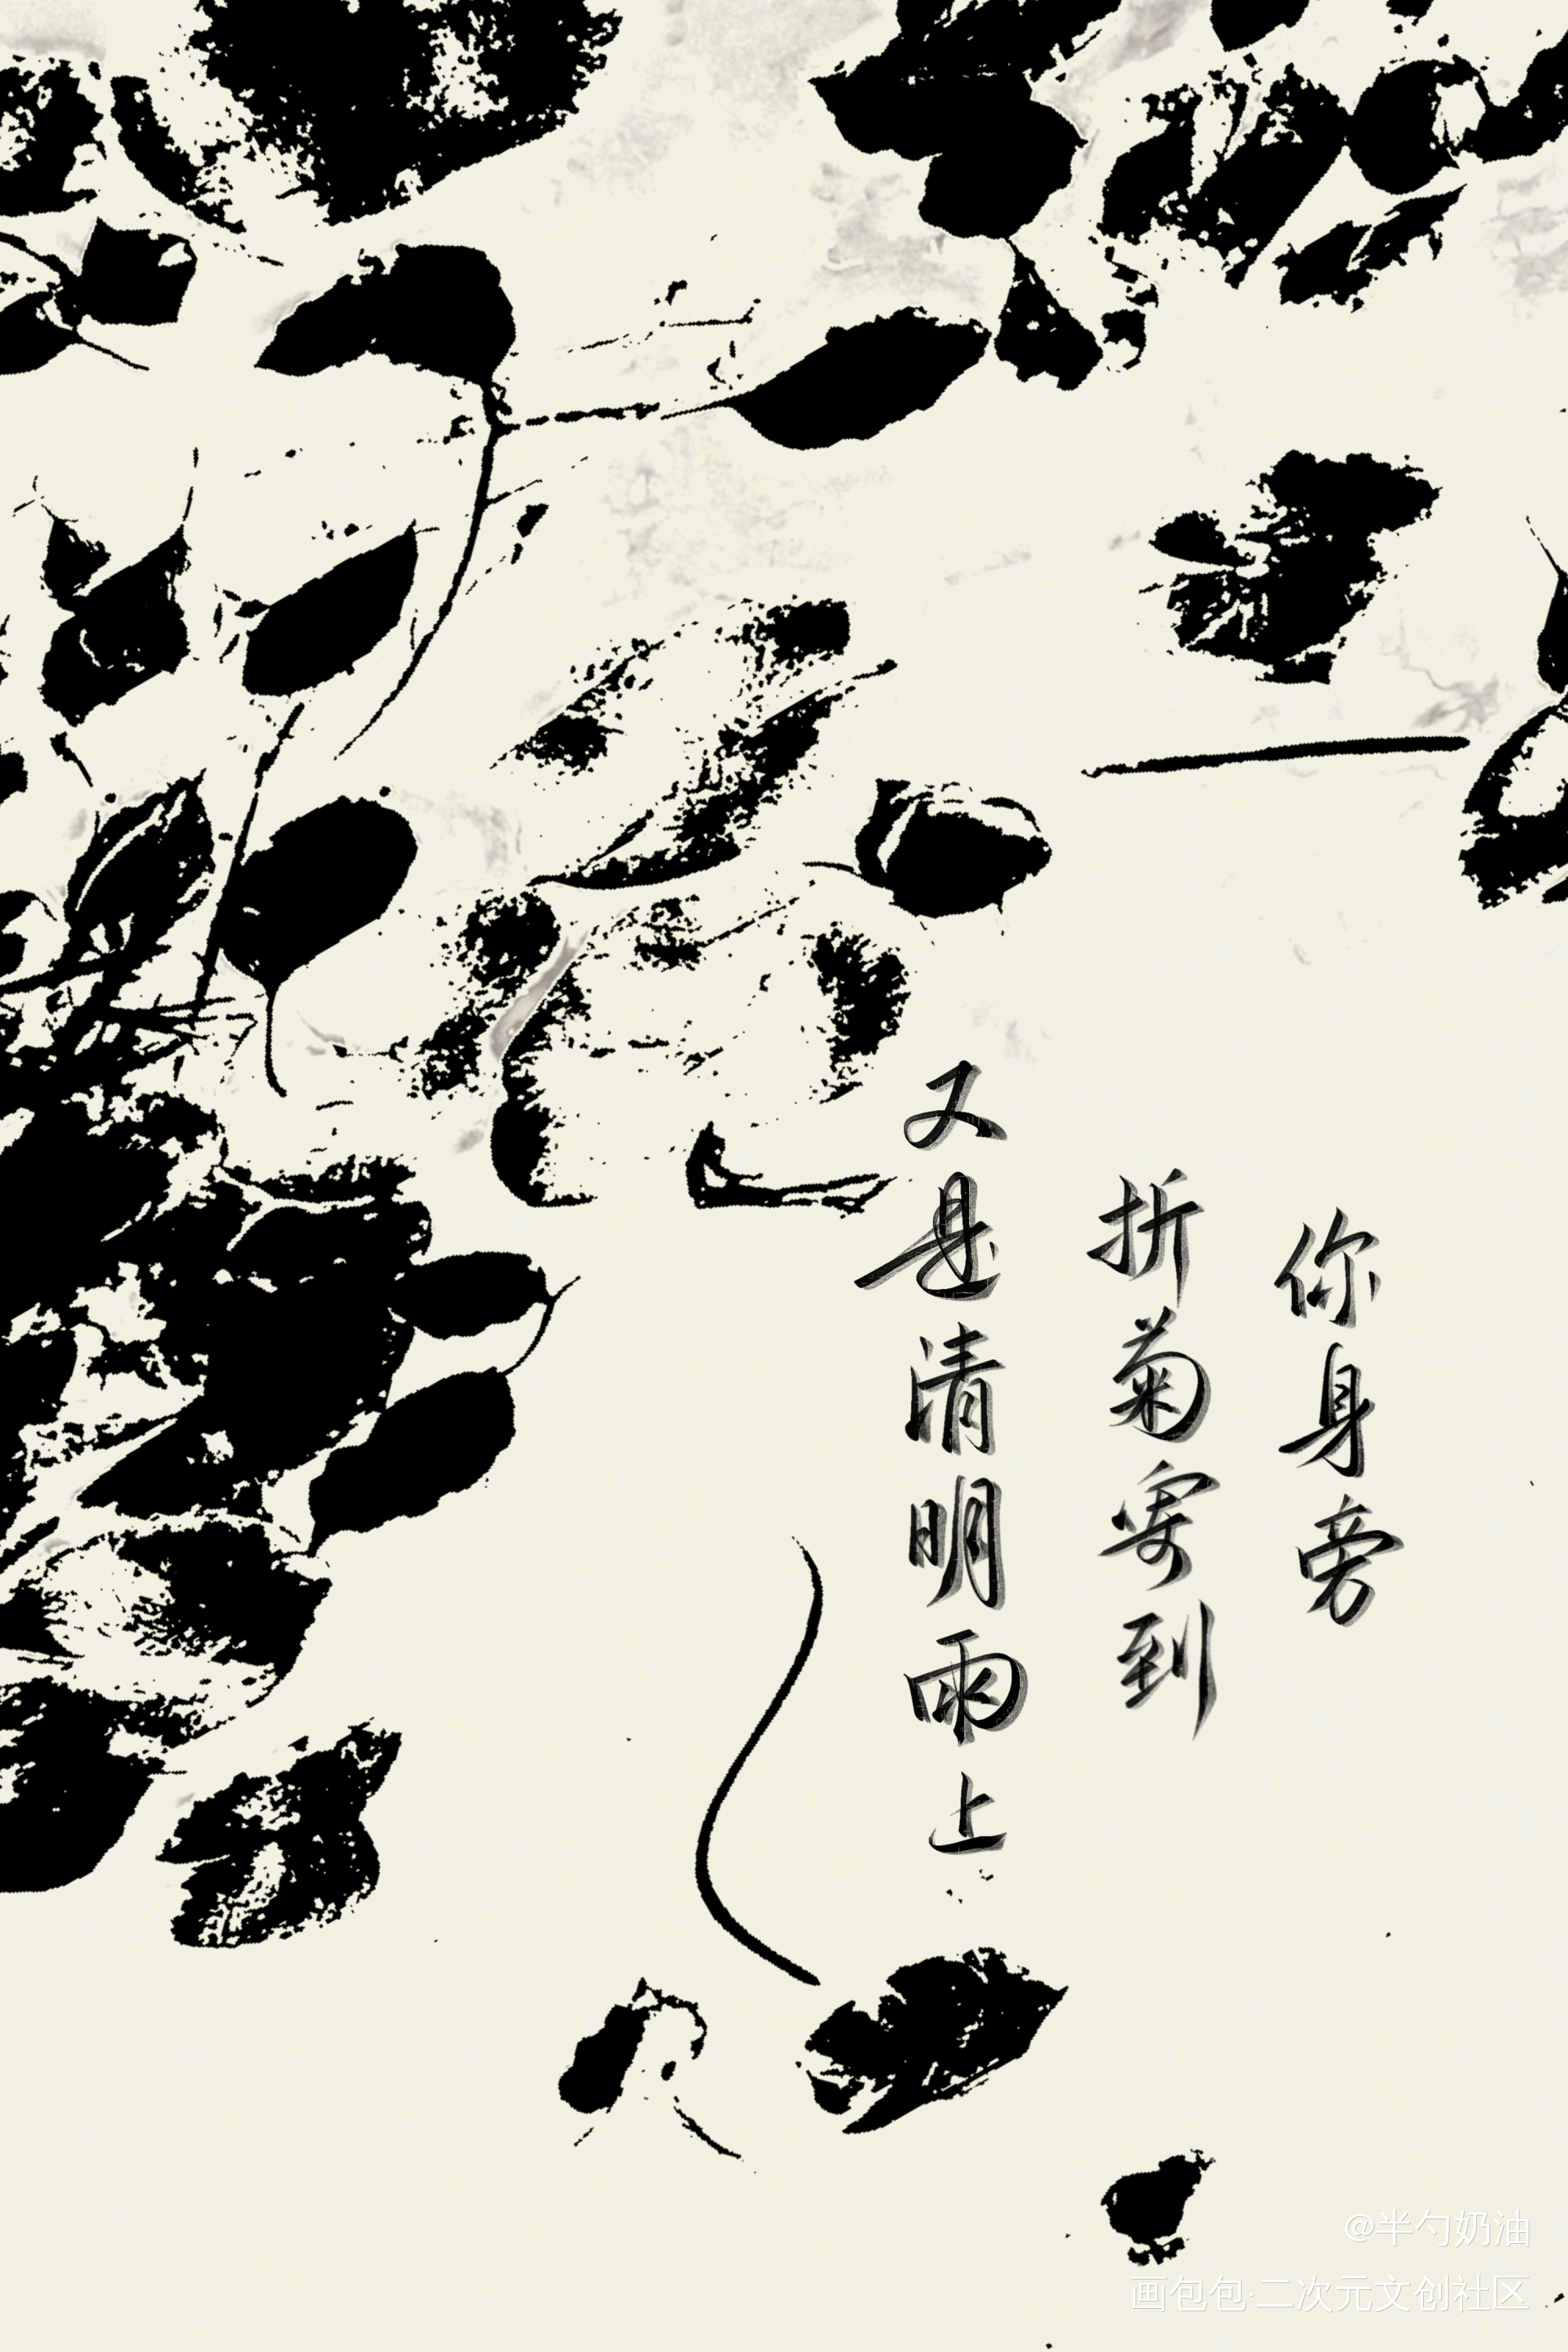 又是清明雨上
折菊寄到
你身旁
@半勺奶油
画包包·二次元文创社区